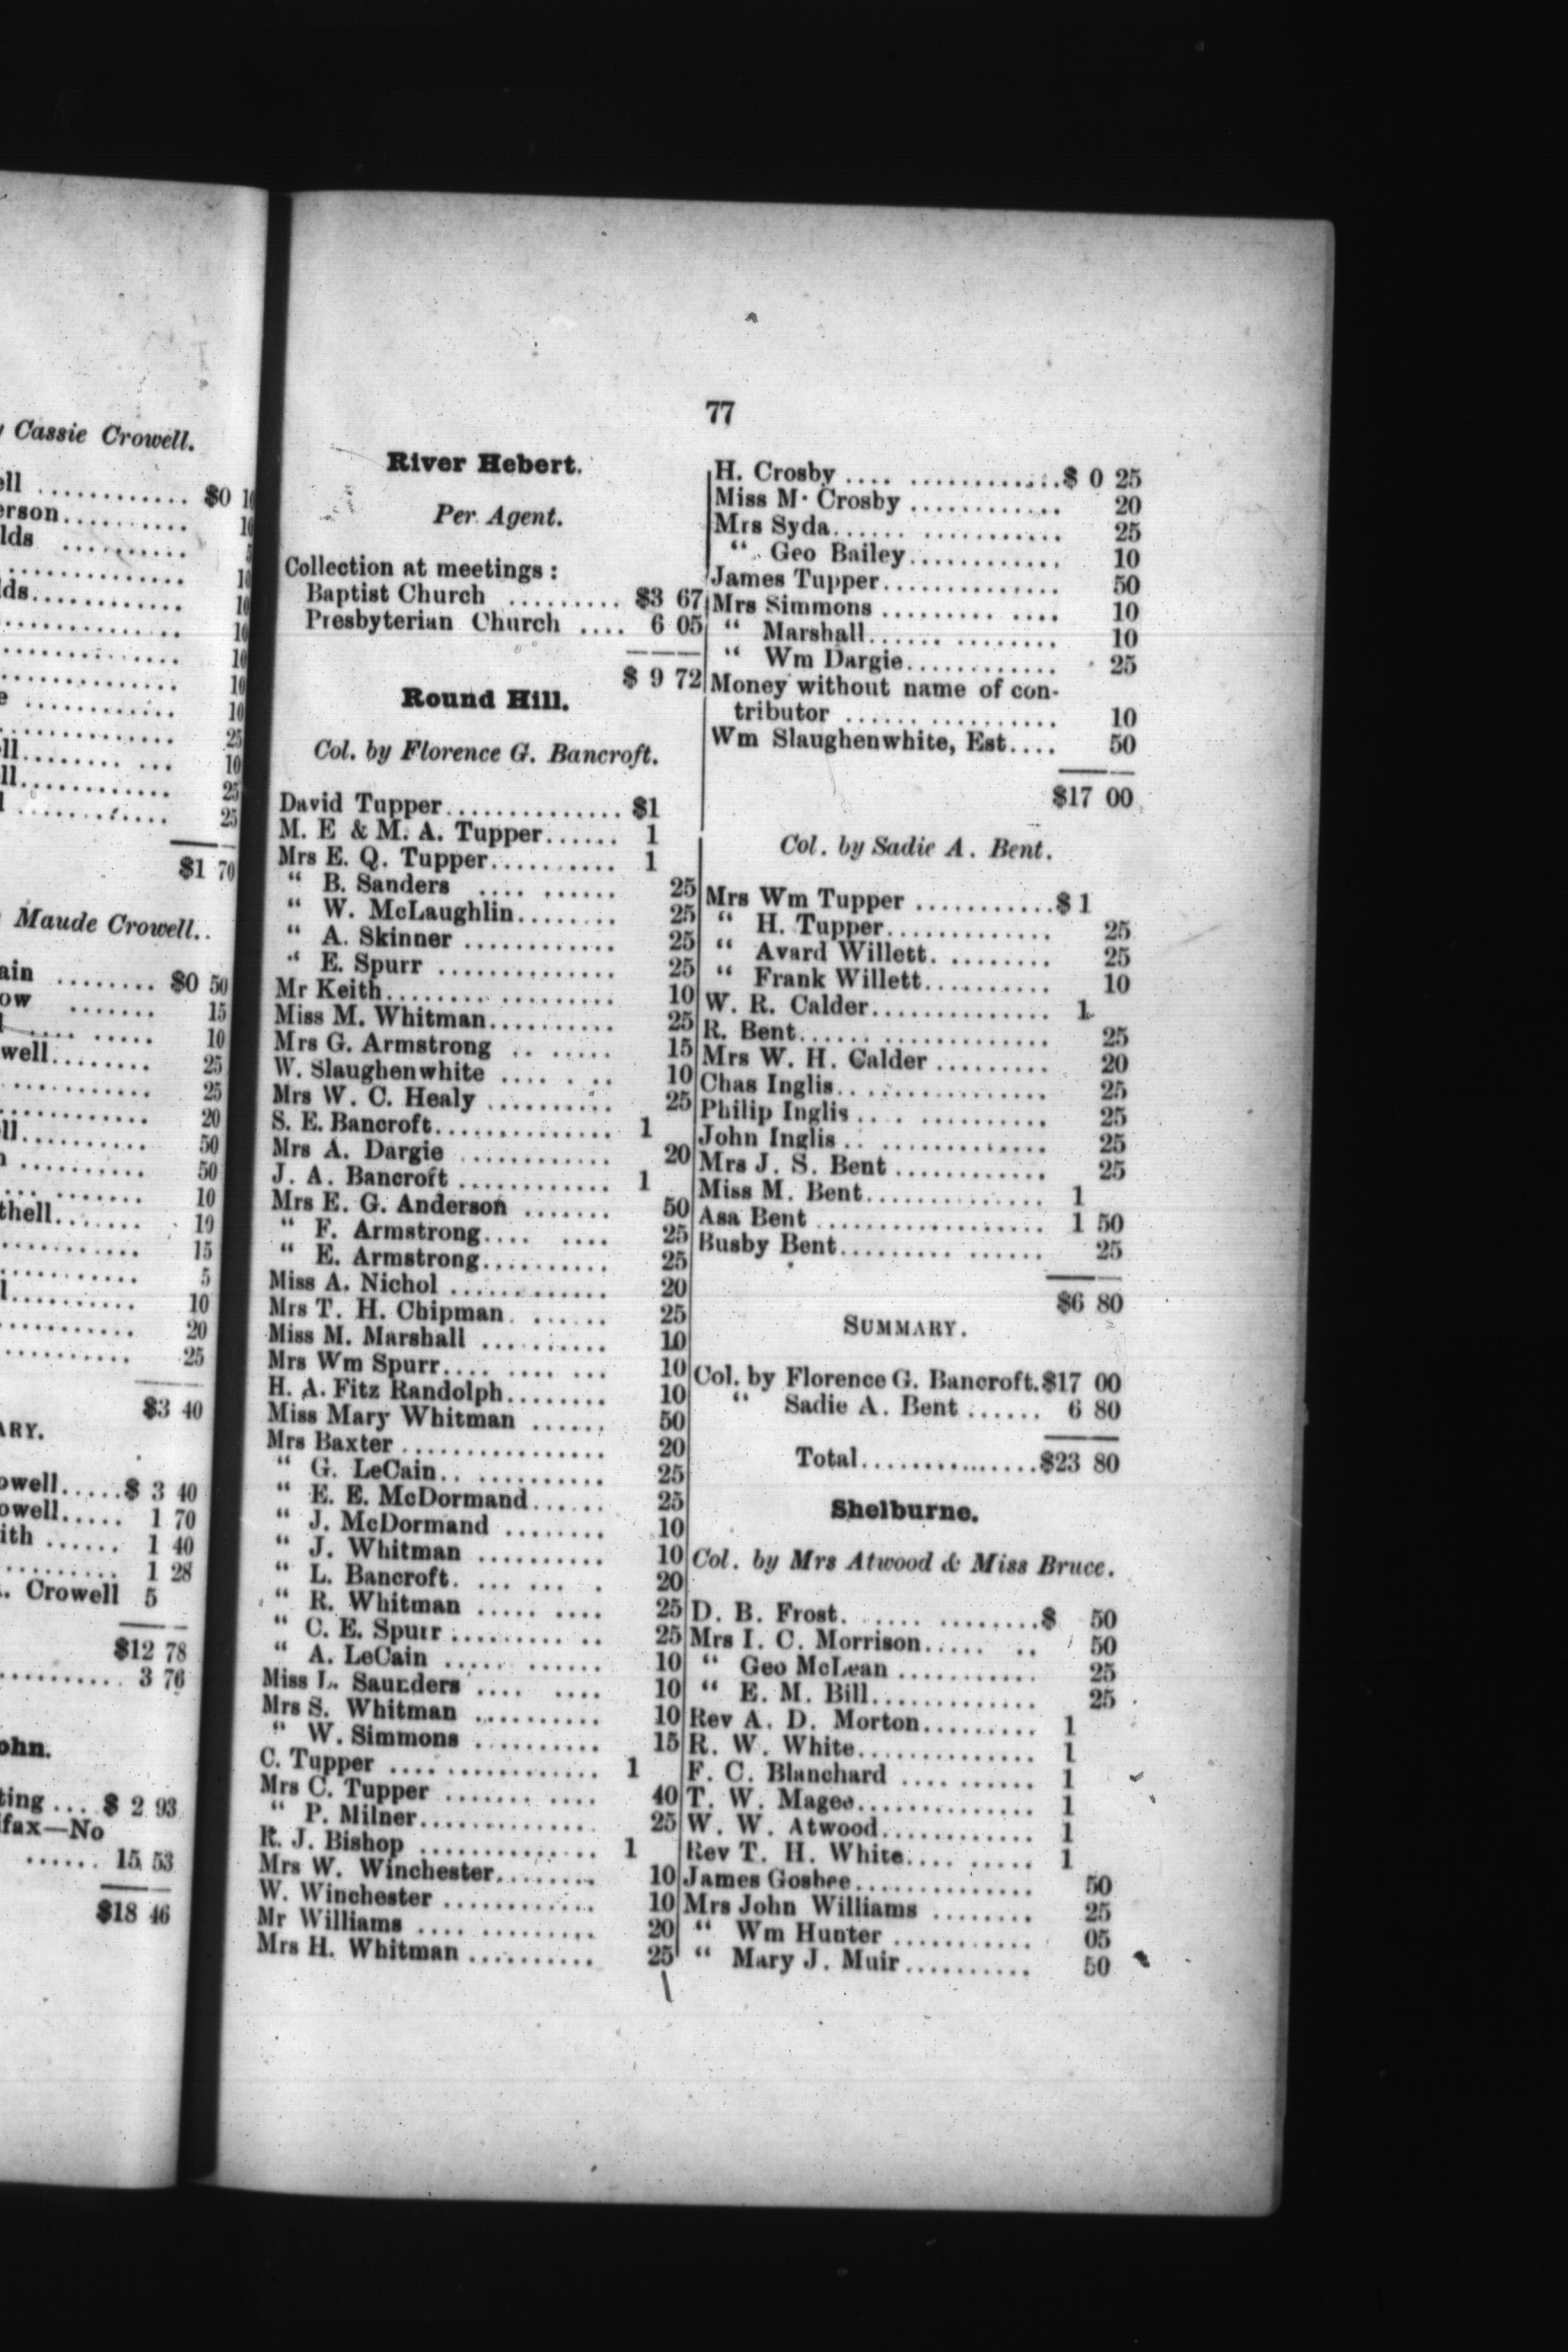 Cassie Crowell.
............ $0 10
.......... 10
.......... 5
.............. 10
............ 10
.............. 10
.............. 10
.............. 10
............ 10
.............. 25
........ ... 10
............ 25
............ 25
$1 70
Maude Crowell.
........ $0 50
....... 15
.... ..... 10
........ 25
............ 25
............ 20
.......... 50
.......... 50
... ....... 10
....... 10
............ 15
............ 5
.......... 10
............ 20
.......... 25
$3 40
.....$ 3 40
..... 1 70
...... 1 40
.......... 1 28
Crowell 5
$12 78
.......... 3 76
... $ 2 93
—No
...... 15 53
$18 46
77
River Hebert.
Per Agent.
Collection at meetings:
Baptist Church ......... $3 67
Presbyterian Church .... 6 05
$ 9 72
Round Hill.
Col. by Florence G. Bancroft.
David Tupper.............. $1
M. E & M. A. Tupper...... 1
Mrs E. Q. Tupper.......... 1
“ B. Sanders .... ...... 25
“ W. McLaughlin........ 25
“ A. Skinner ............ 25
“ E. Spurr .............. 25
Mr Keith........ ......... 10
Miss M. Whitman.......... 25
Mrs G. Armstrong .. ...... 15
W. Slaughenwhite .... . .. 10
Mrs W. C. Healy .......... 25
S. E. Bancroft.............. 1
Mrs A. Dargie ............ 20
J. A. Bancroft ............ 1
Mrs E. G. Anderson ....... 50
“ F. Armstrong.... .... 25
“ E. Armstrong.......... 25
Miss A. Nichol ............. 20
Mrs T. H. Chipman. ...... 25
Miss M. Marshall .......... 10
Mrs Wm Spurr.... .... ... 10
H. A. Fitz Randolph........ 10
Miss Mary Whitman ...... 50
Mrs Baxter ................ 20
“ G. LeCain.. .......... 25
“ E. E. McDormand...... 25
“ J. McDormand ........ 10
“ J. Whitman .......... 10
“ L. Bancroft. ... ... . 20
“ R. Whitman ..... .... 25
“ C. E. Spurr ......... .. 25
“ A. LeCain ..... ...... 10
Miss L. Saunders .... .... 10
Mrs S. Whitman .......... 10
“ W. Simmons .......... 15
C. Tupper .... ............ 1
Mrs C. Tupper ....... .... 40
“ P. Milner.............. 25
R. J. Bishop .............. 1
Mrs W. Winchester........ 10
W. Winchester ............ 10
Mr Williams .... ......... 20
Mrs H. Whitman .......... 25
H. Crosby .... ............$ 0 25
Miss M. Crosby ............ 20
Mrs Syda...... ........... 25
“ Geo Bailey............ 10
James Tupper.............. 50
Mrs Simmons ......... .... 10
“ Marshall...... ........ 10
“ Wm Dargie............ 25
Money without name of con-
tributor ...... .......... 10
Wm Slaughenwhite, Est.... 50
$17 00
Col. by Sadie A. Bent.
Mrs Wm Tupper ...........$ 1
“ H. Tupper............. 25
“ Avard Willett. ........ 25
“ Frank Willett.......... 10
W. R. Calder.............. 1
R. Bent...... ............. 25
Mrs W. H. Calder ......... 20
Chas Inglis.. ............. 25
Philip Inglis ... .......... 25
John Inglis .. ............ 25
Mrs J. S. Bent ............ 25
Miss M. Bent.............. 1
Asa Bent .................. 1 50
Busby Bent......... ...... 25
$6 80
SUMMARY.
Col. by Florence G. Bancroft.$17 00
“ Sadie A. Bent ...... 6 80
Total..............$23 80
Shelburne.
Col. by Mrs Atwood & Miss Bruce.
D. B. Frost. ..... ........$ 50
Mrs I. C. Morrison..... .. 50
“ Geo McLean ........... 25
“ E. M. Bill............. 25
Rev A. D. Morton......... 1
R. W. White.............. 1
F. C. Blanchard .... ...... 1
T. W. Magee.............. 1
W. W. Atwood............ 1
Rev T. H. White.... ..... 1
James Gosbee.............. 50
Mrs John Williams ........ 25
“ Wm Hunter ........... 05
“ Mary J. Muir.......... 50